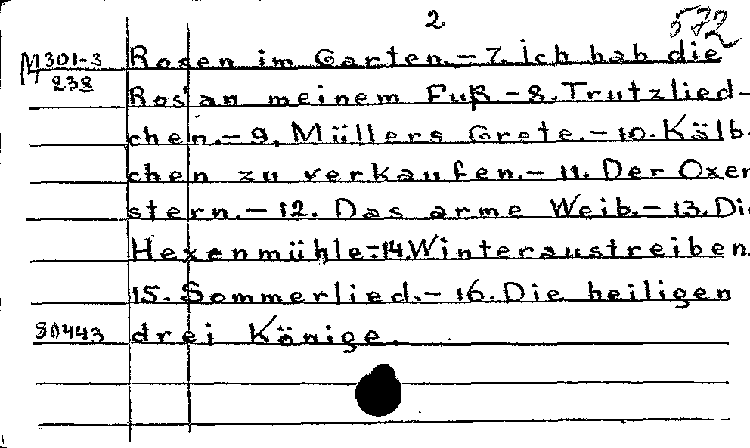 2
572
M301-3
238
Rosen im Garten.-7.Ich hab die
Ros'an meinem Fuß-8.Trutzlied-
chen.-9.Müllers Grete.-10.Kälb-
chen zu verkaufen.-11.Der Oxen
stern.-12.Das arme Weib.-13.Die
Hexenmühle-14.Winteraustreiben
15.Sommerlied.-16.Die heiligen
80443 drei Könige.